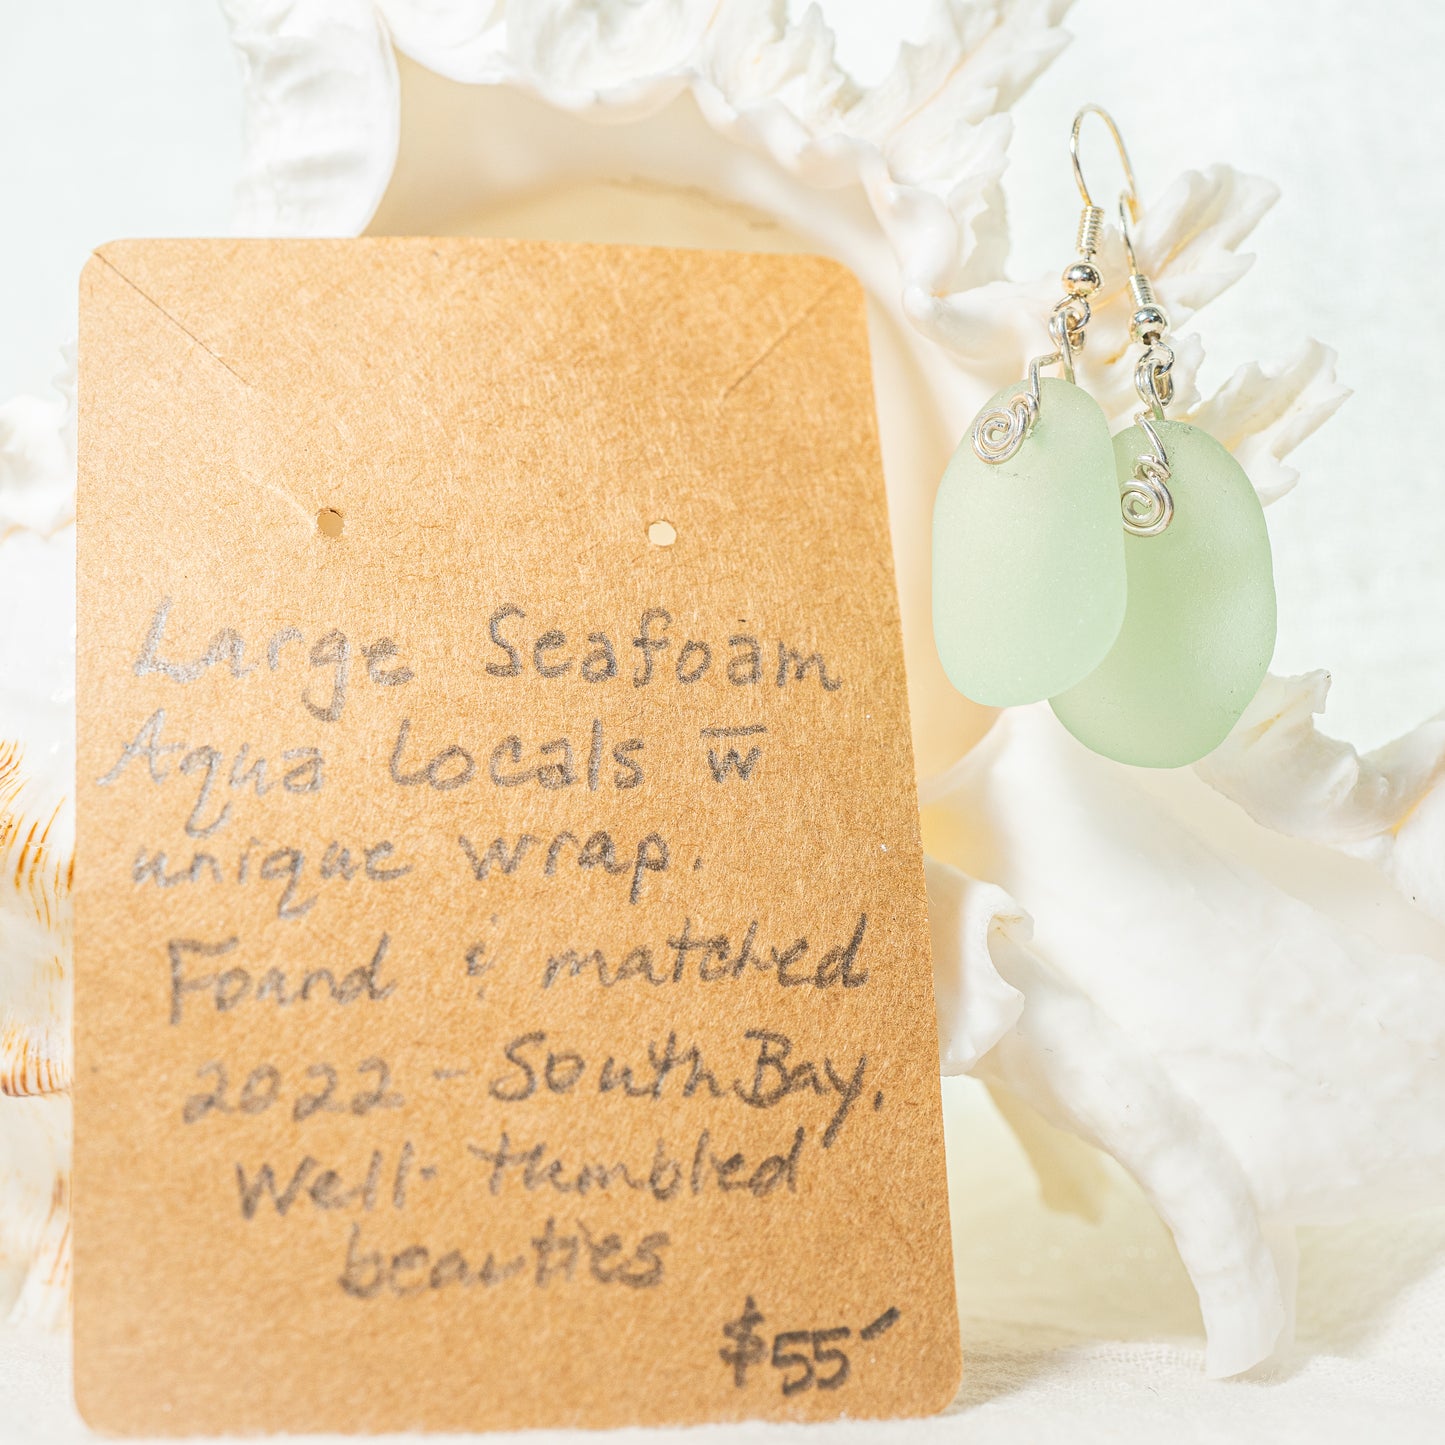 Large Seafoam
Aqua Locals w̅
unique wrap.
Found & matched
2022 - South Bay.
Well-tumbled
beauties
$55